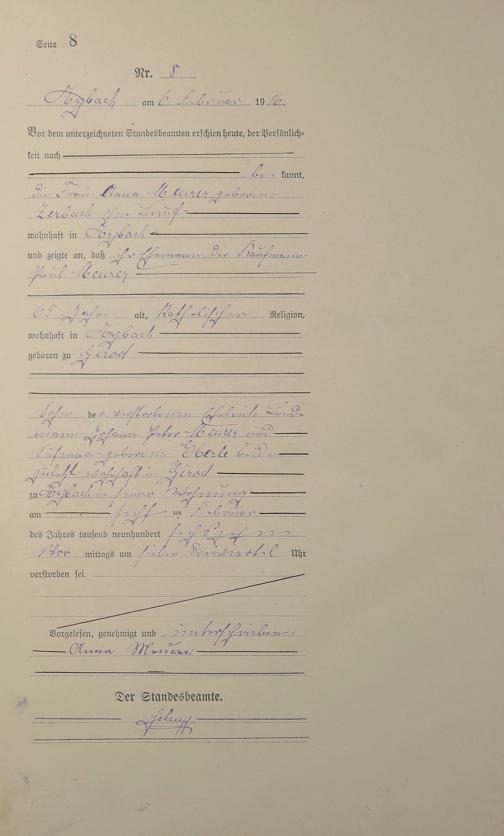 Seite 8
Nr. 8
Asbach am 6. Februar 1916.
Vor dem unterzeichneten Standesbeamten erschien heute, der Persönlich-
keit nach
be kannt,
die Frau Anna Meurer geborene
Zerbach ohne Beruf
wohnhaft in Asbach
und zeigte an, daß ihr Ehemann der Kaufmann
Paul Meurer
65 Jahre alt, katholischer Religion,
wohnhaft in Asbach
geboren zu Girod
Sohn der verstorbenen Eheleute
Johann Peter Meurer und
Susanna geborene Eberle beide
zuletzt wohnhaft in Girod
zu Asbach in seiner Wohnung
am sechsten Februar
des Jahres tausend neunhundert sechszehn
Vor mittags um sieben dreiviertel Uhr
verstorben sei.
Vorgelesen, genehmigt und unterschrieben
Anna Meurer
Der Standesbeamte.